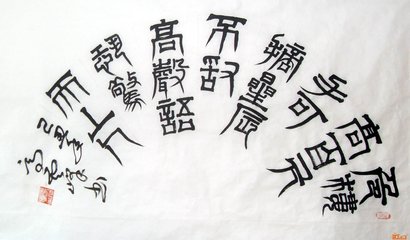 危樓
高百尺
手可
摘星辰
不敢
高聲語
恐驚
天上人
己丑